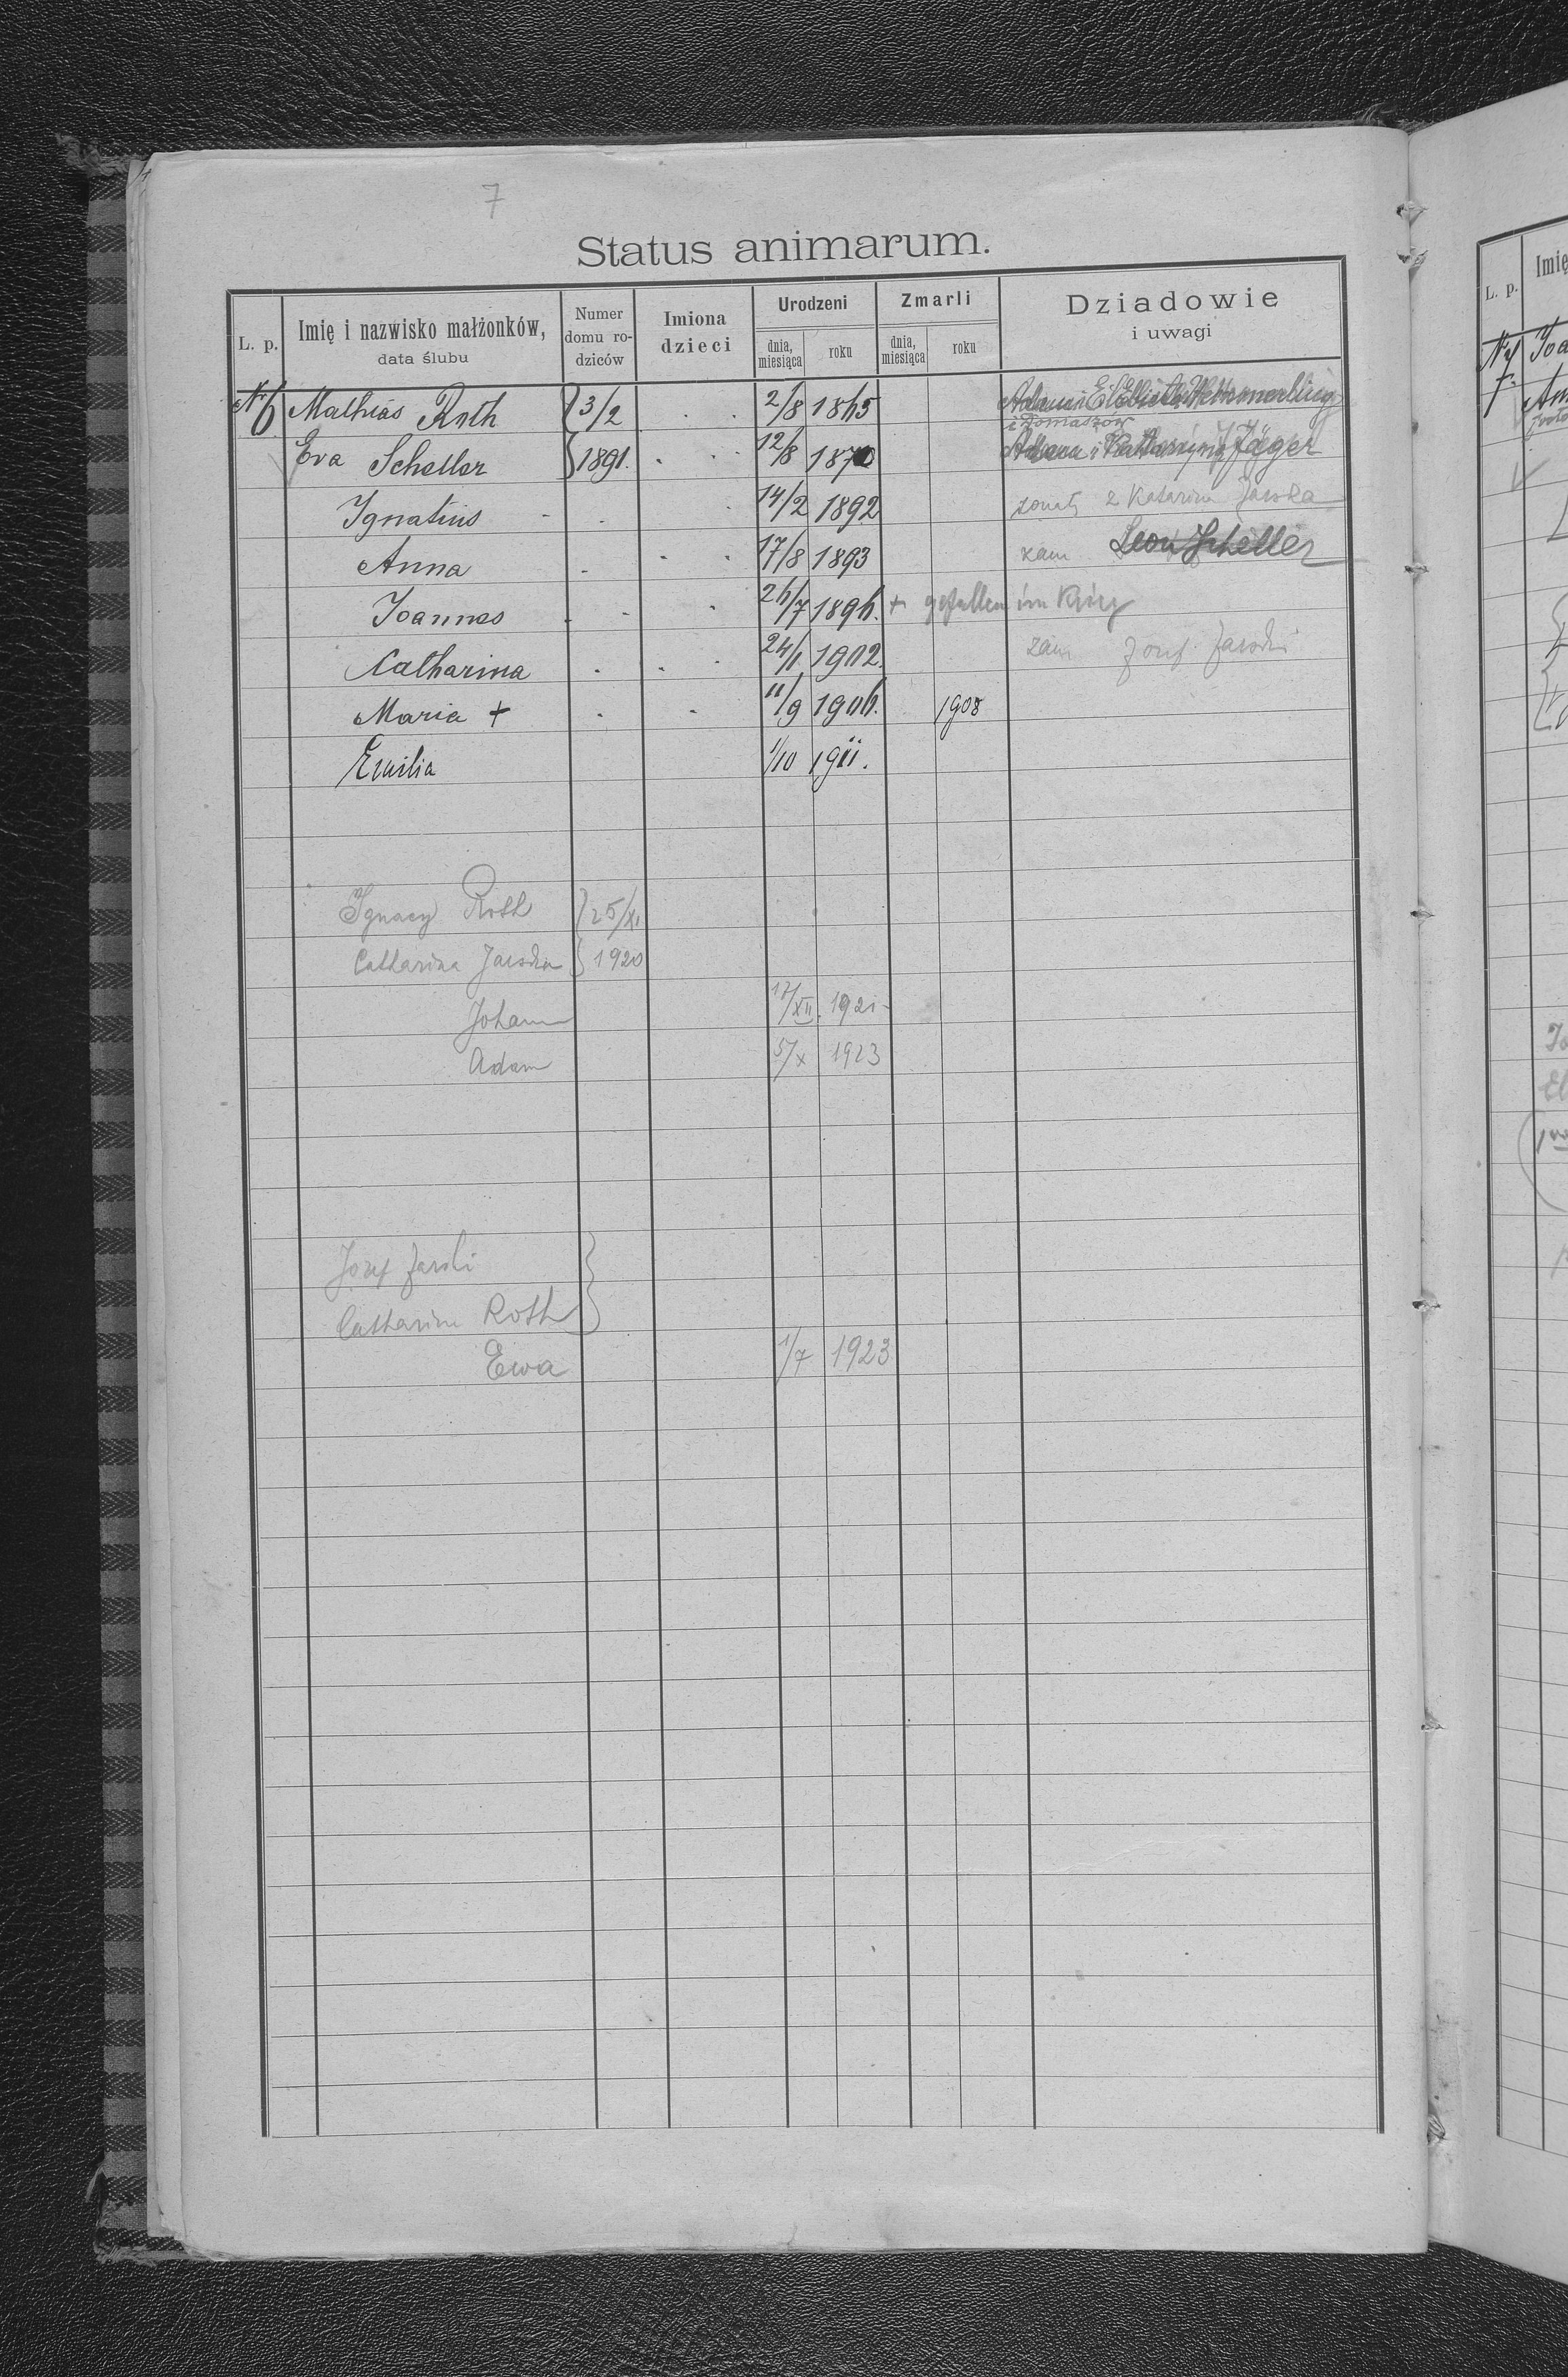 7
Status animarum.
L. p. Imię i nazwisko małżonków, data ślubu Numer domu rodziców Imiona dzieci Urodzeni dnia, miesiąca roku Zmarli dnia, miesiąca roku Dziadowie i uwagi
Nr 6 Mathias Roth } 3/2 2/8 1865 Adam i
i Tomaszów
Eva Scheller } 1891. 12/8 1870 Adam i Katarzyna Jäger
Ignatius 14/2 1892 żonaty z Katarina Jaroska
Anna 17/8 1893 zam Leon Scheller
Joannes 26/7 1896. + gefallen im Krieg
Catharina 24/1 1902. zam Jozef
Maria + 11/9 1906. 1908
Emilia 1/10 1911.
Ignacy Roth } 25/XI
Catharina } 1920
Johann 17/XII. 1921
Adam 5/X 1923
Jozef }
Catharina Roth }
Ewa 1/7 1923
L. p. Imię
Nr 7.